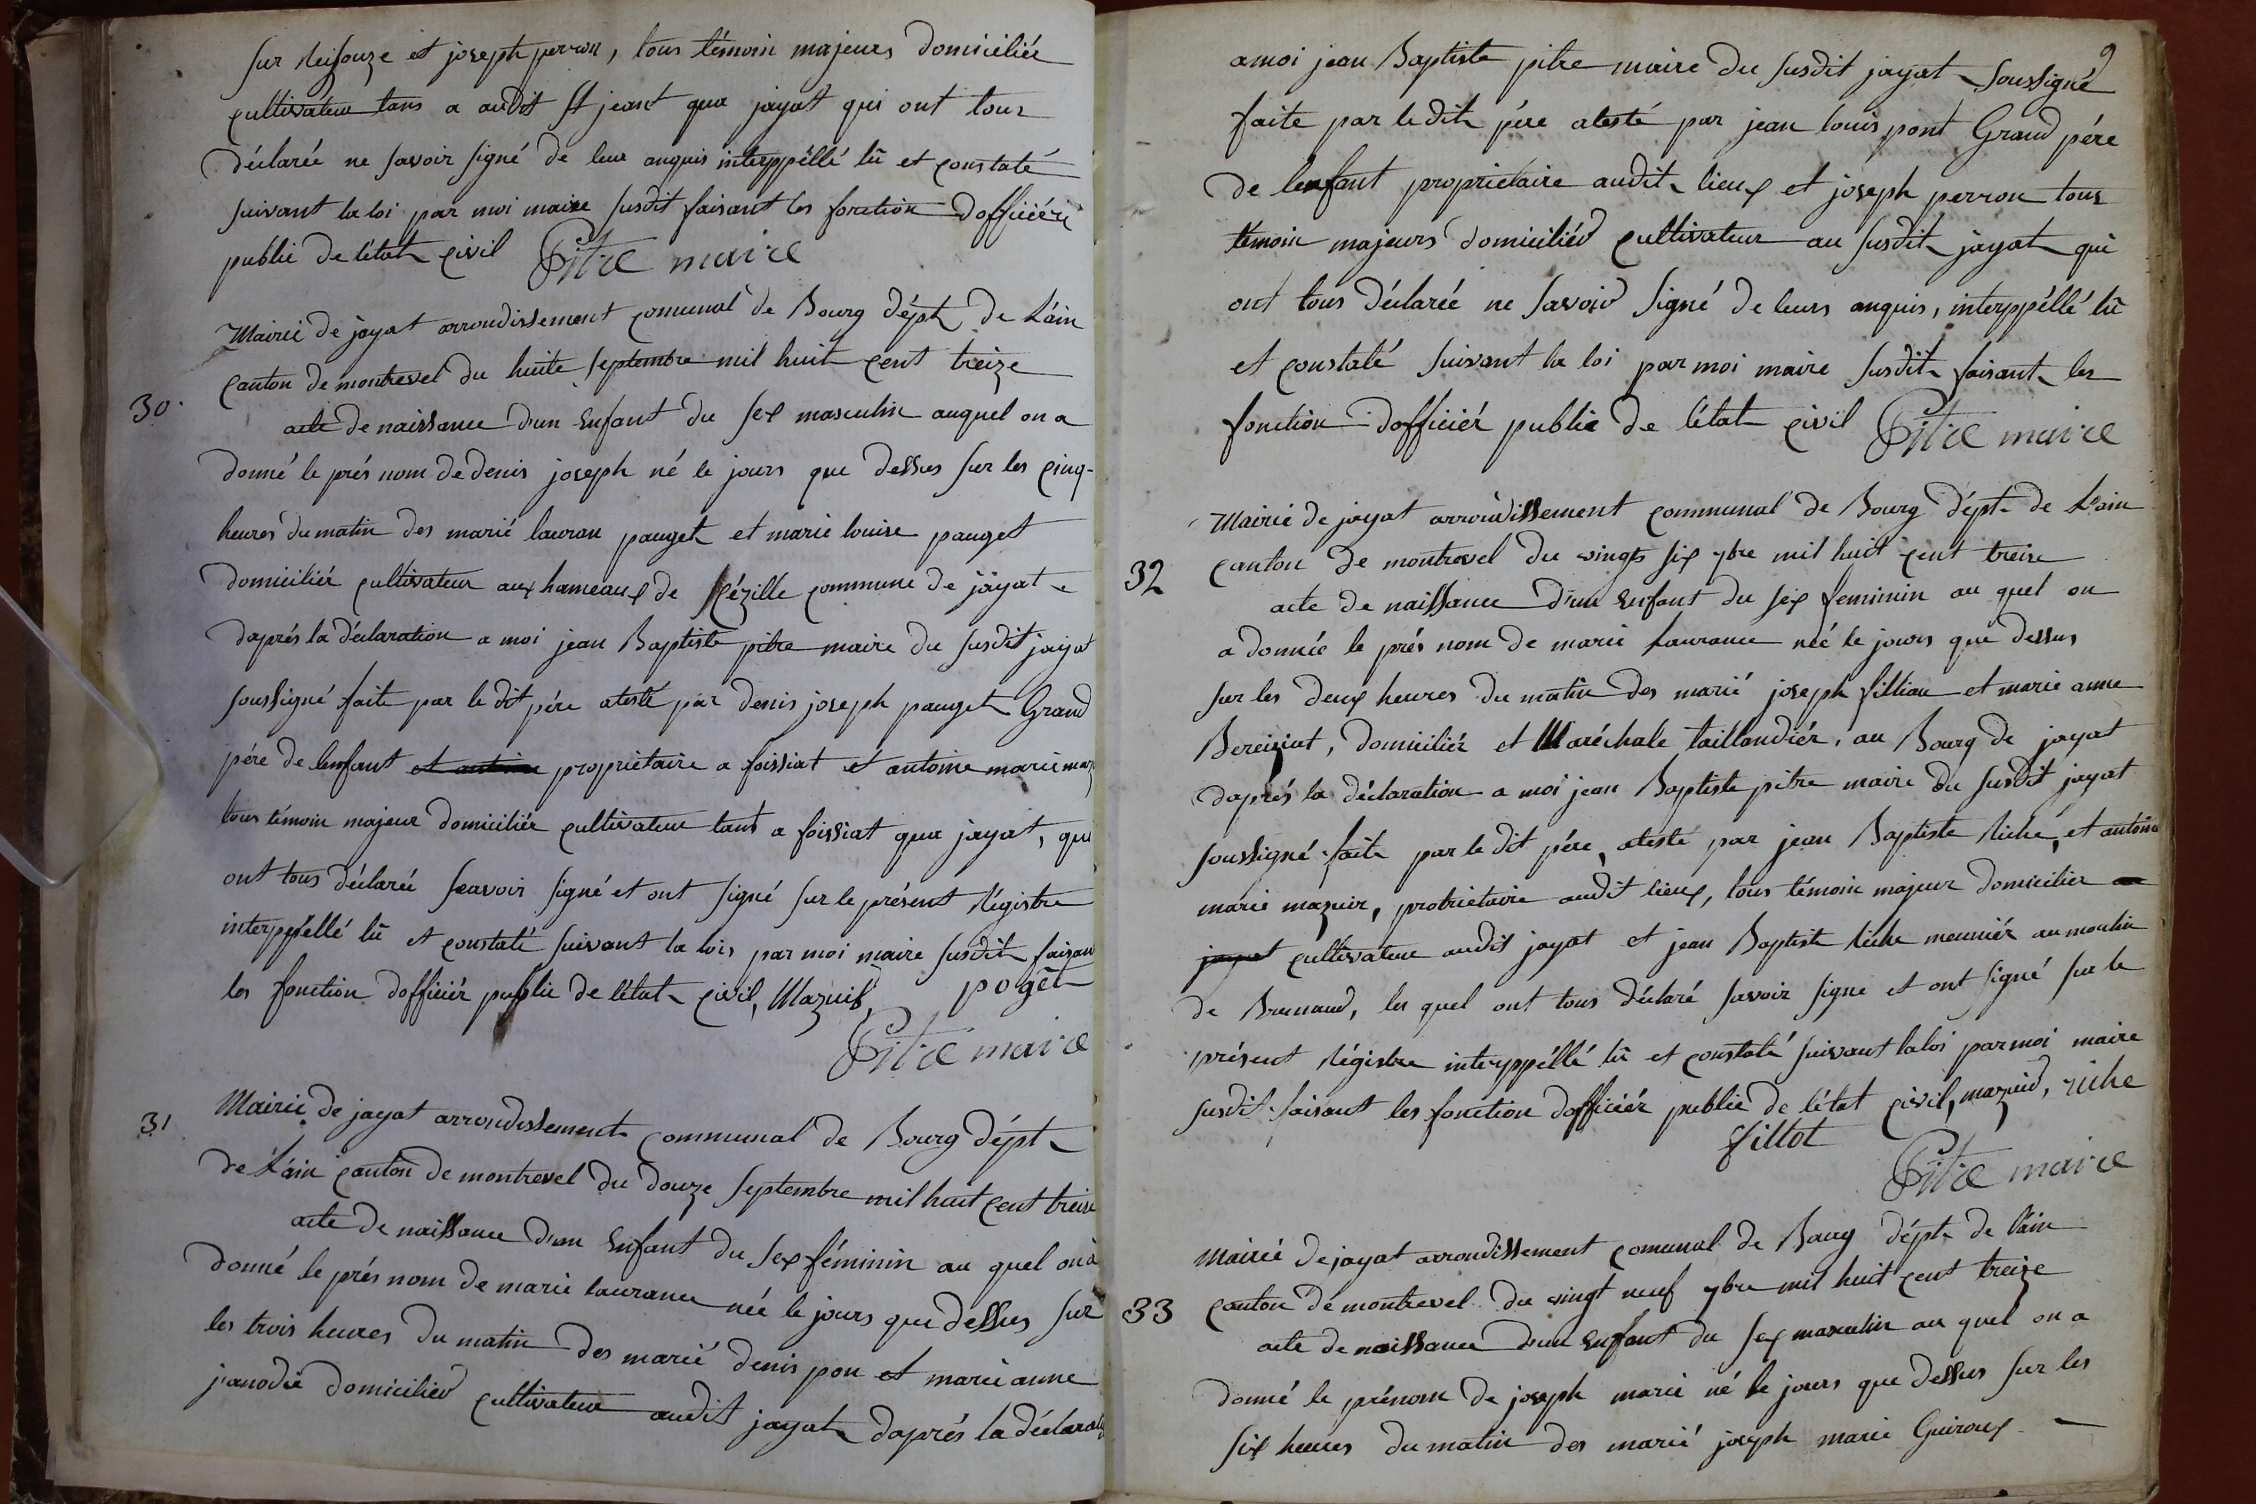 sur Reisouze et joseph perron, tous témoin majeurs domiciliér
cultivateur tans a audit St jeant qua jayat qui ont tous
déclarée ne savoir signé de leur anquis interppéllé lû et constaté
suivant la loi par moi maire susdit faisant les fonction dofficiér
public de létat civil Pitre maire
Mairie de jayat arrondissement comunal de Bourg dépt. de Láin
canton de montrevel du huite septembre mil huit cent treize
30.
acte de naissance d'un Enfant du sex masculin auquel on a
donné le prés nom de denis joseph né le jours que dessus sur les cinq-
heures du matin des marié lauran pauget et marie louise pauget
domiciliér cultivateur aux hameaux de Cézille commune de jayat
daprés la déclaration a moi jean Baptiste pitre maire du susdit jayat
soussigné faite par le dit pére atesté par denis joseph pauget Grand
pére de lenfant et antoine propriétaire a foissiat et antoine marie maz
tous témoin majeur domiciliér cultivateur tant a foissiat qua jayat, qui
ont tous déclarée scavoir signé et ont signé sur le présent Régistre
interppéllé lû et constaté suivant la lois par moi maire susdit faisan
les fonction dofficiér public de létat civil, Mazuir, pogêt
Pitre maire
31
Mairie de jayat arrondissement communal de Bourg dépt.
de Láin canton de montrevel du douze septembre mil huit cent treise
acte de naissance d'un Enfant du sex féminin au quel on a
donné le prés nom de marie laurance née le jours que dessus sur
les trois heures du matin des marié denis pon et marie anne
janodie domiciliér cultivateur audit jayat daprés la déclarat
9
amoi jean Baptiste pitre maire du susdit jayat soussigné
faite par le dit pére atesté par jean louis pont Grand pére
de lenfant propriétaire audit lieux et joseph perron tous
témoin majeurs domiciliér cultivateur au susdit jayat qui
ont tous déclarée ne savoir signé de leurs anquis, interppéllé lû
et constaté suivant la loi par moi maire susdit faisant les
fonction dofficiér public de létat civil Pitre maire
Mairie de jayat arrondissement communal de Bourg dépt. de Lain
32
canton de montrevel du vingt six 7bre mil huit cent treise
acte de naissance d'un Enfant du sex feminin au quel on
a donnée le prés nom de marie Laurance née le jours que dessus
sur les deux heures du matin des marié joseph filliau et marie anne
Bereiziat, domiciliér et Maréchale taillandiér, au Bourg de jayat
daprés la déclaration a moi jean Baptiste pitre maire du susdit jayat
soussigné faite par le dit pére, atesté par jean Baptiste Riche, et antoine
marie mazuir, protriétaire audit lieux, tous témoin majeur domicilier au
jayat cultivateur audit jayat et jean Baptiste Riche meuniér au moulin
de Brunaud, les quel ont tous déclaré savoir signe et ont signé sur le
présent Régistre interppéllé lû et constaté suivant la loi par moi maire
susdit faisant les fonction dofficiér public de létat civil, mazuir, riche
fillot
Pitre maire
Mairie de jayat arrondissement comunal de Bourg dépt. de láin
33
canton de montrevel du vingt neuf 7bre mil huit cent treize
acte de naissance d'un Enfant du sex masculin au quel on a
donné le prénom de joseph marie né le jours que dessus sur les
six heures du matin des marié joseph marie Guiroux